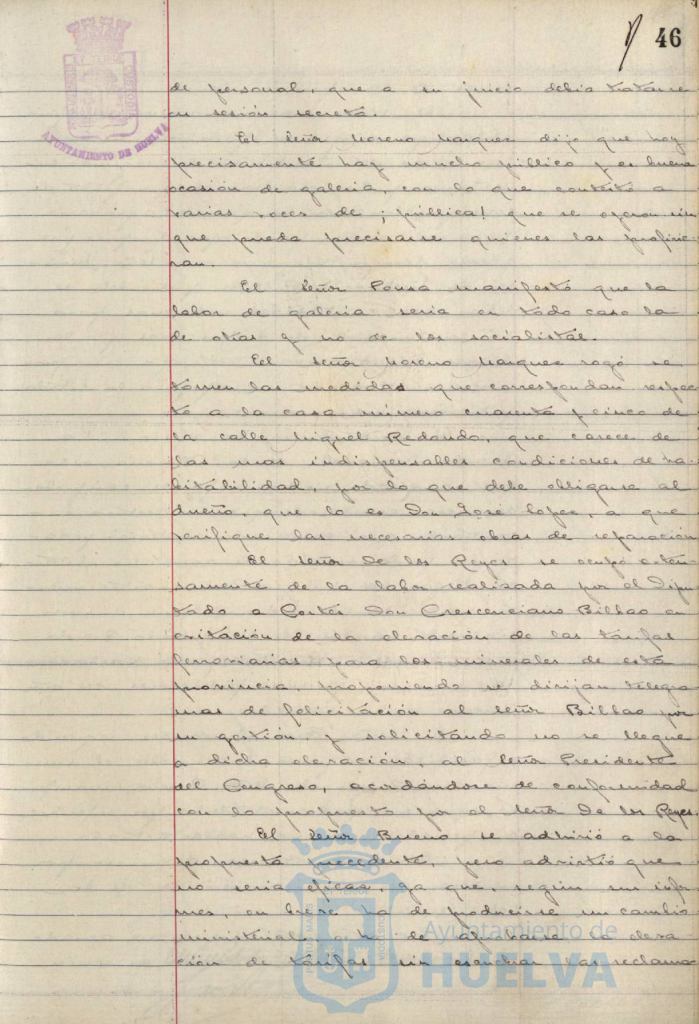 46
AYUNTAMIENTO DE HUELVA
de personal, que a su juicio debia tratarse
en sesión secreta.
El Señor Moreno Marquez dijo que hoy
precisamente hay mucho público y es buena
ocasión de galeria, con lo que contestó a
varias voces de ¡pública! que se oyeron sin
que pueda precisarse quienes las profirie-
ran.
El Señor Ponsa manifestó que la
labor de galeria seria en todo caso la
de otros y no de los socialistas.
El Señor Moreno Marquez rogó se
tomen las medidas que correspondan respec-
to a la casa número cuarenta y cinco de
la calle Miguel Redondo, que carece de
las mas indispensables condiciones de ha-
bitabilidad, por lo que debe obligarse al
dueño, que lo es Don José Lopez, a que
verifique las necesarias obras de reparación
El Señor De los Reyes se ocupó exten-
samente de la labor realizada por el Dipu-
tado a Cortes Don Crescenciano Bilbao en
evitación de la elevación de las tarifas
ferroviarias para los minerales de esta
provincia, proponiendo se dirijan telegra-
mas de felicitación al Señor Bilbao por
su gestión, y solicitando no se llegue
a dicha elevación, al Señor Presidente
del Congreso, acordándose de conformidad
con lo propuesto por el Señor De los Reyes.
El Señor Bueno se adhirió a la
propuesta precedente, pero advirtió que
no seria eficaz, ya que, según sus infor-
mes, en breve ha de producirse un cambio
ministerial ha de la eleva-
ción de tarifas sin escuchar las reclama-
Ayuntamiento de
HUELVA